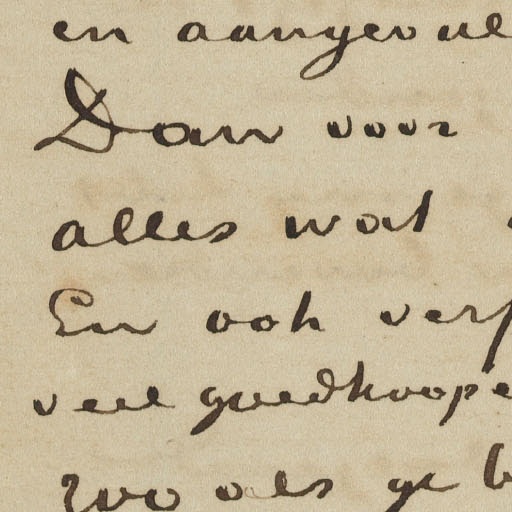 en aangevul
Dan voor
alles wat
En ook verf
veel goedkoope
zoo als ge b